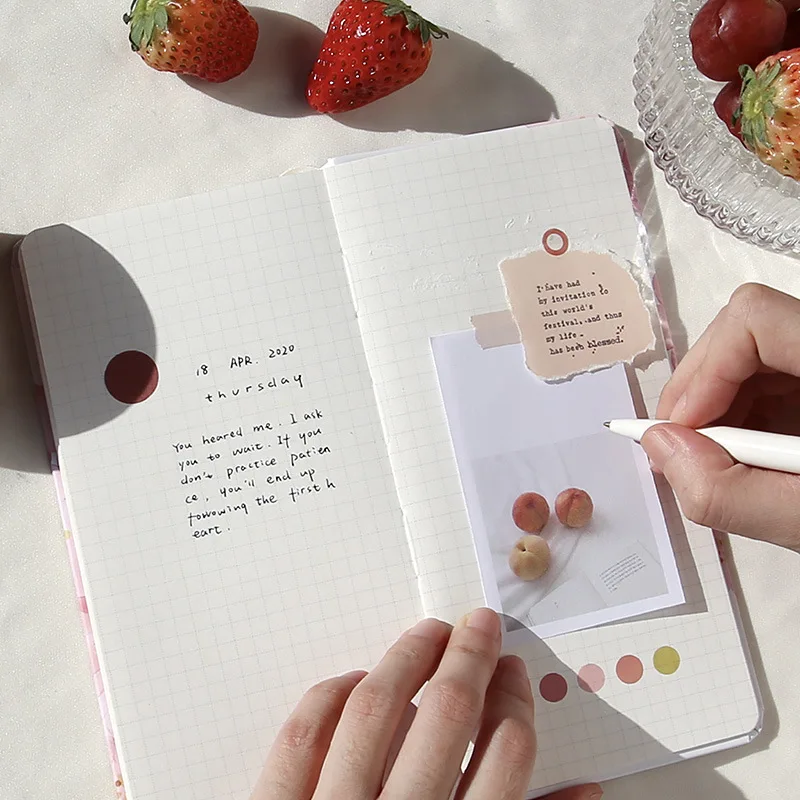 18 APR. 2020
thursday
You heared me. I ask
you to wait. If you
don't practice patien
ce, you'll end up
towowing the first h
eart.
I have had
by invitation to
this world's
festival, and thus
my life
has been blessed.